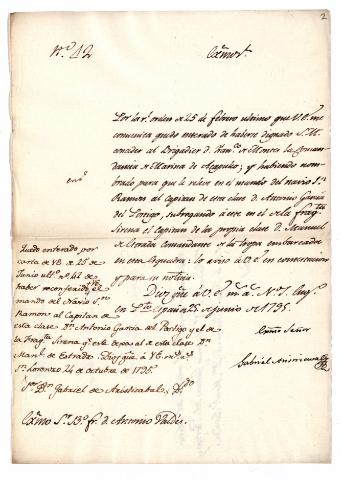 2
N.º 42
Exmo Sr.
Por la r.l orden de 25 de febrero ultimo que V.E. me
comunica quedo enterado de haberse dignado S. M.
conceder al Brigadier d. Fran.co de Montes la Coman-
dancia de Marina de ; y habiendo nom-
brado para que le releve en el mando del navio S.n
Ramon al Capitan de esta clase D. Antonio Garcia
del Postigo, subrogando á este en el de la frag.ta
Sirena el Capitan de la propia clase D. Manuel
de Estrada Comandante de la tropa embarcada
en esta Esquadra: lo aviso á V.E. en contestacion
y para su noticia.
Dios gue á V.E. m.s a.s N.º S.n
en P.to España 25 de junio de 1795.
Exmo Señor
Gabriel Aristizabal
Quedo enterado por
carta de VE. de 25 de
Junio ult.º n.º 42 de
haber V.E. conferido el
mando del Navio S.n
Ramon al Capitan de
esta clase D.n Antonio Garcia del Postigo y el de
la Frag.ta Sirena q.e este dexa al de esta clase D.n
Man.l de Estrada. Dios gue á VE. m.s a.s
S.n Lorenzo 24 de octubre de 1795.
S.or D.n Gabriel de Aristizabal
Exmo S.or B.º fr. d. Antonio Valdés.